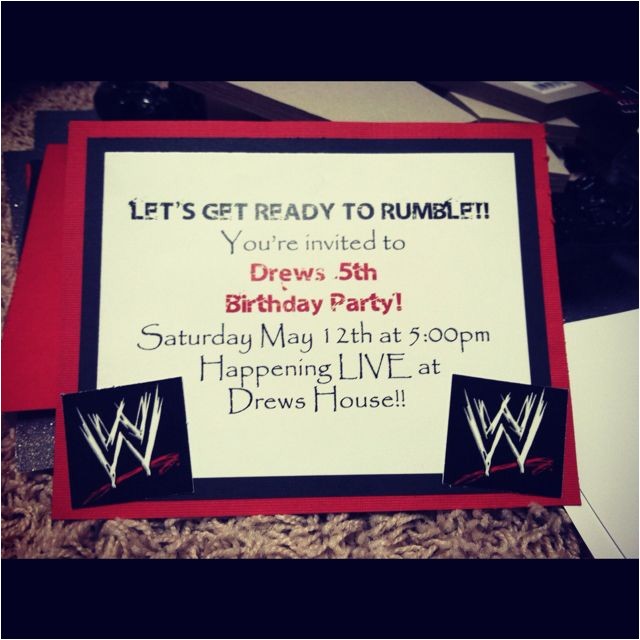 LET'S GET READY TO RUMBLE!!
You're invited to
Drews 5th
Birthday Party!
Saturday May 12th at 5:00pm
Happening LIVE at
Drews House!!
W W